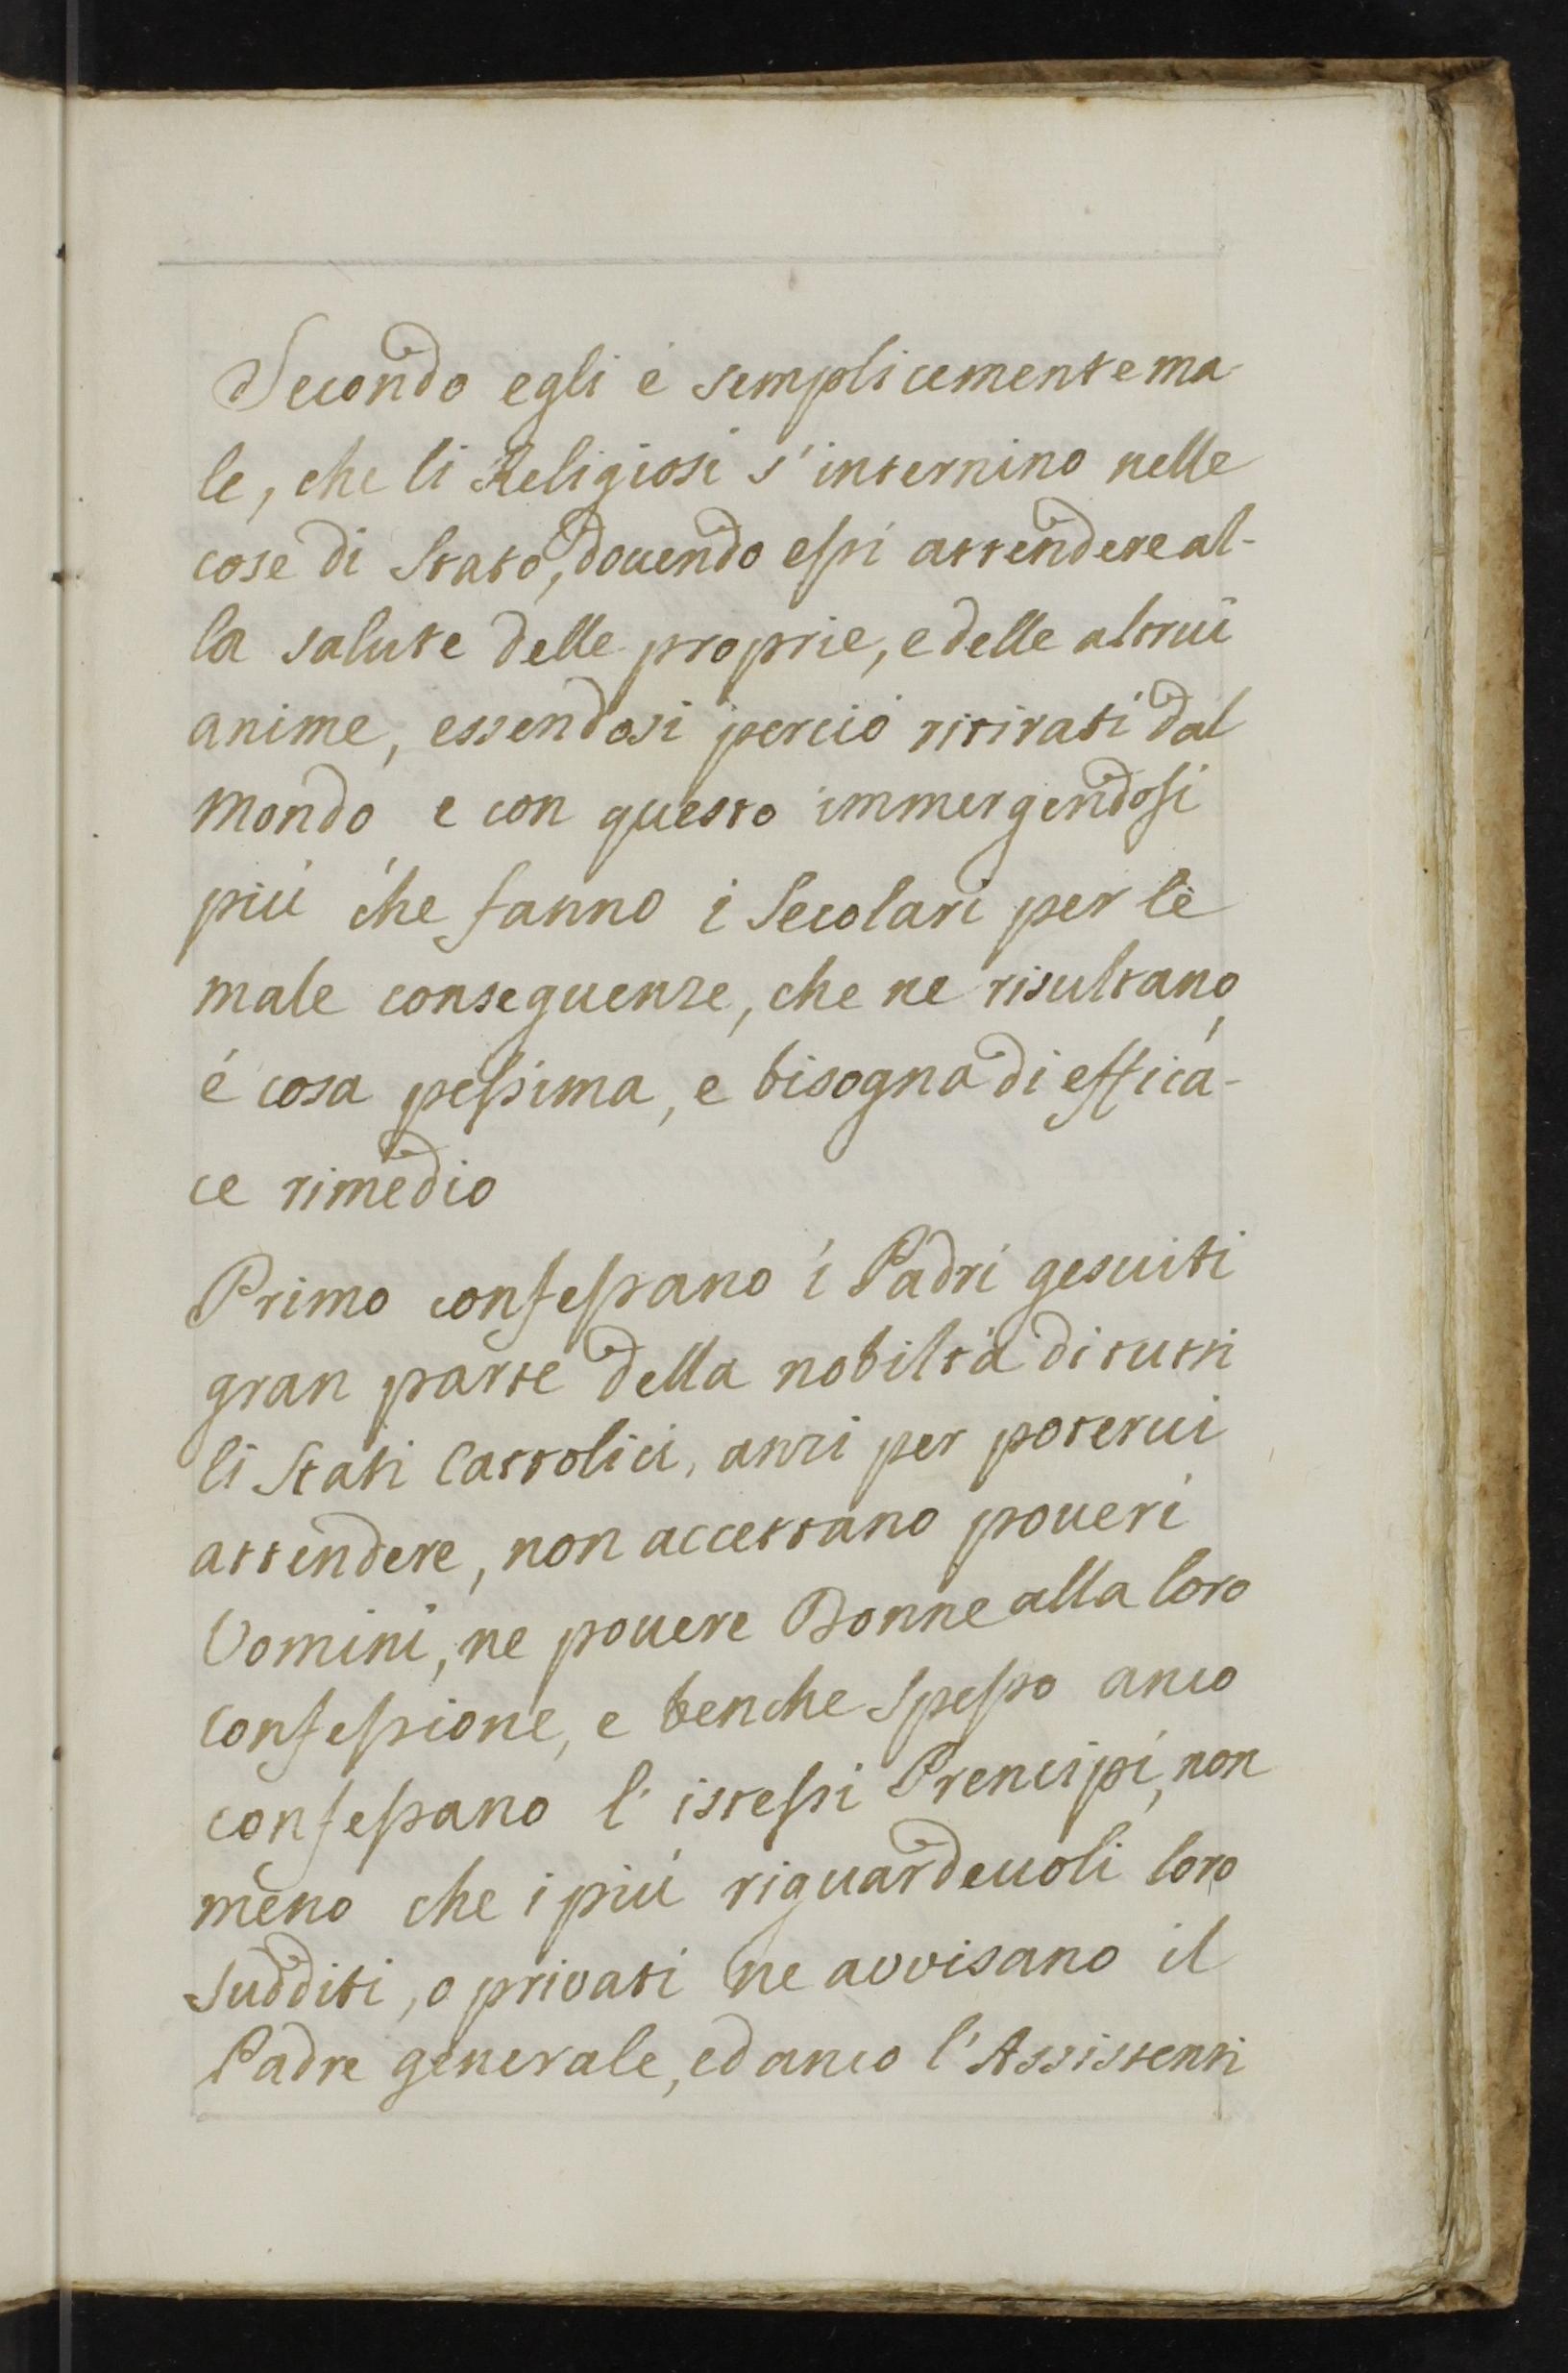 Secondo egli é semplicemente ma-
le, che li Religiosi s'internino nelle
cose di Stato, douendo essi attendere al-
la salute delle proprie, e delle altrui
anime, essendosi perció ritirati dal
mondo e con questo immergendosi
piú che fanno i Secolari per le
male conseguenze, che ne risultano,
é cosa pessima, e bisogna di effica-
ce rimedio
Primo confessano i Padri gesuiti
gran parte della nobiltá di tutti
li Stati Cattolici, anzi per poterui
attendere, non accettano poueri
Uomini, ne pouere Donne alla loro
confessione, e benche spesso anco
confessano l'istessi Prencipi, non
meno che i piú riguardeuoli loro
sudditi, o privati ne avvisano il
Padre generale, ed anco l'Assistenti